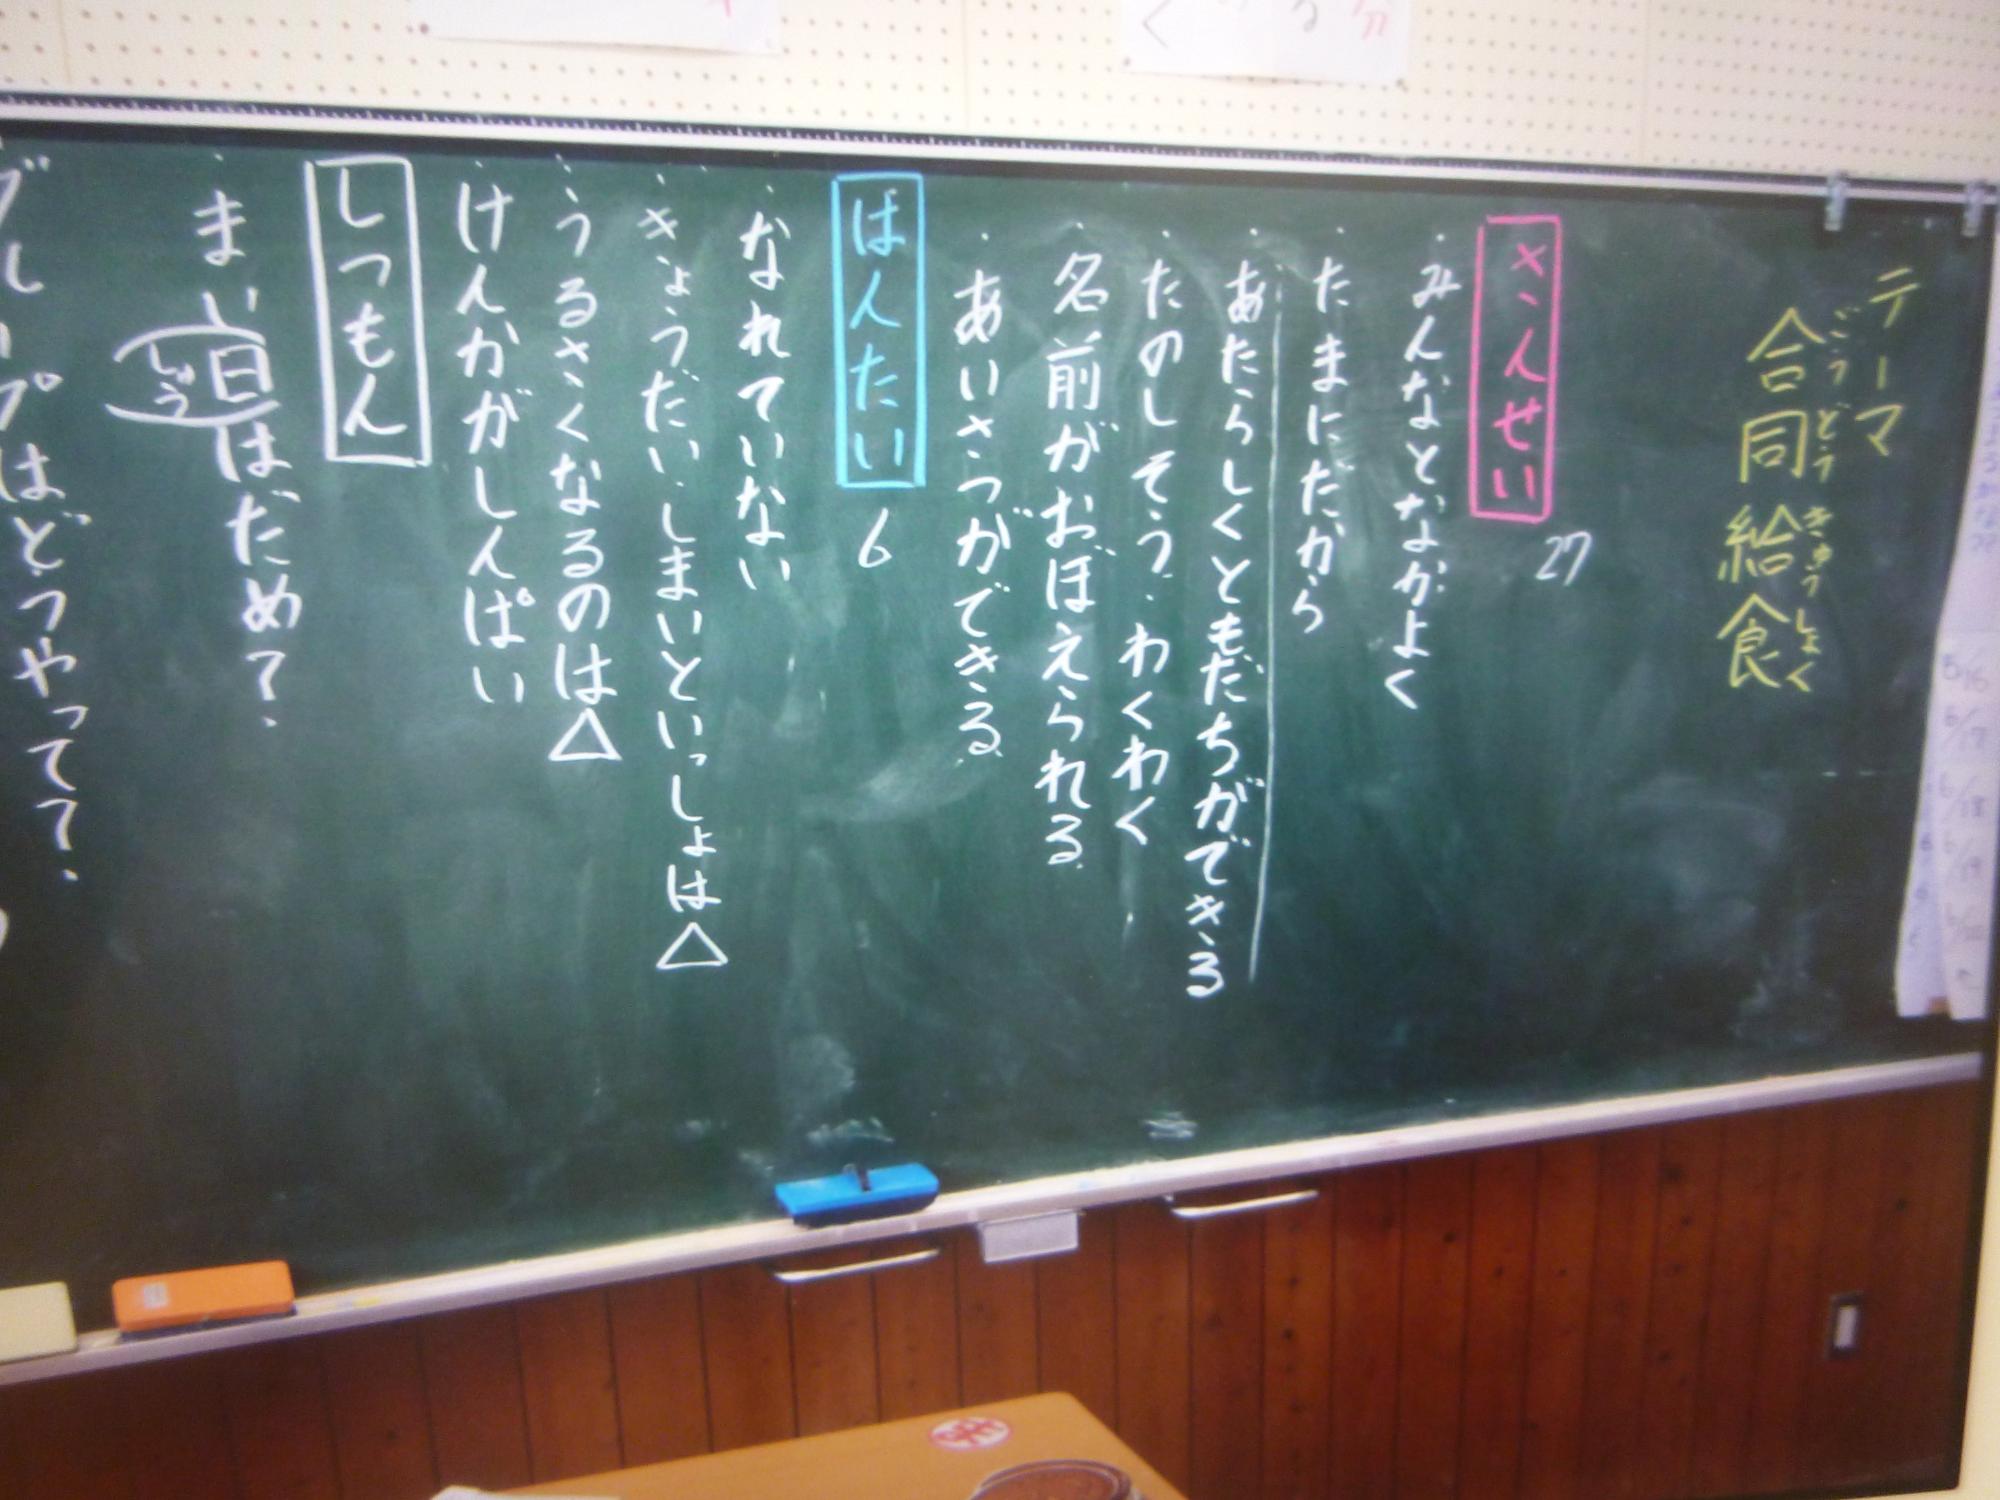 テーマ
ごうどうきゅうしょく
合同給食
さんせい
27
・みんなとなかよく
・たまにだから
・あたらしくともだちができる
・たのしそう・わくわく
・名前がおぼえられる
・あいさつができる
はんたい
6
・なれていない
・きょうだい・しまいといっしょは△
・うるさくなるのは△
・けんかがしんぱい
しつもん
・まい日はだめ？
グループはどうやって？